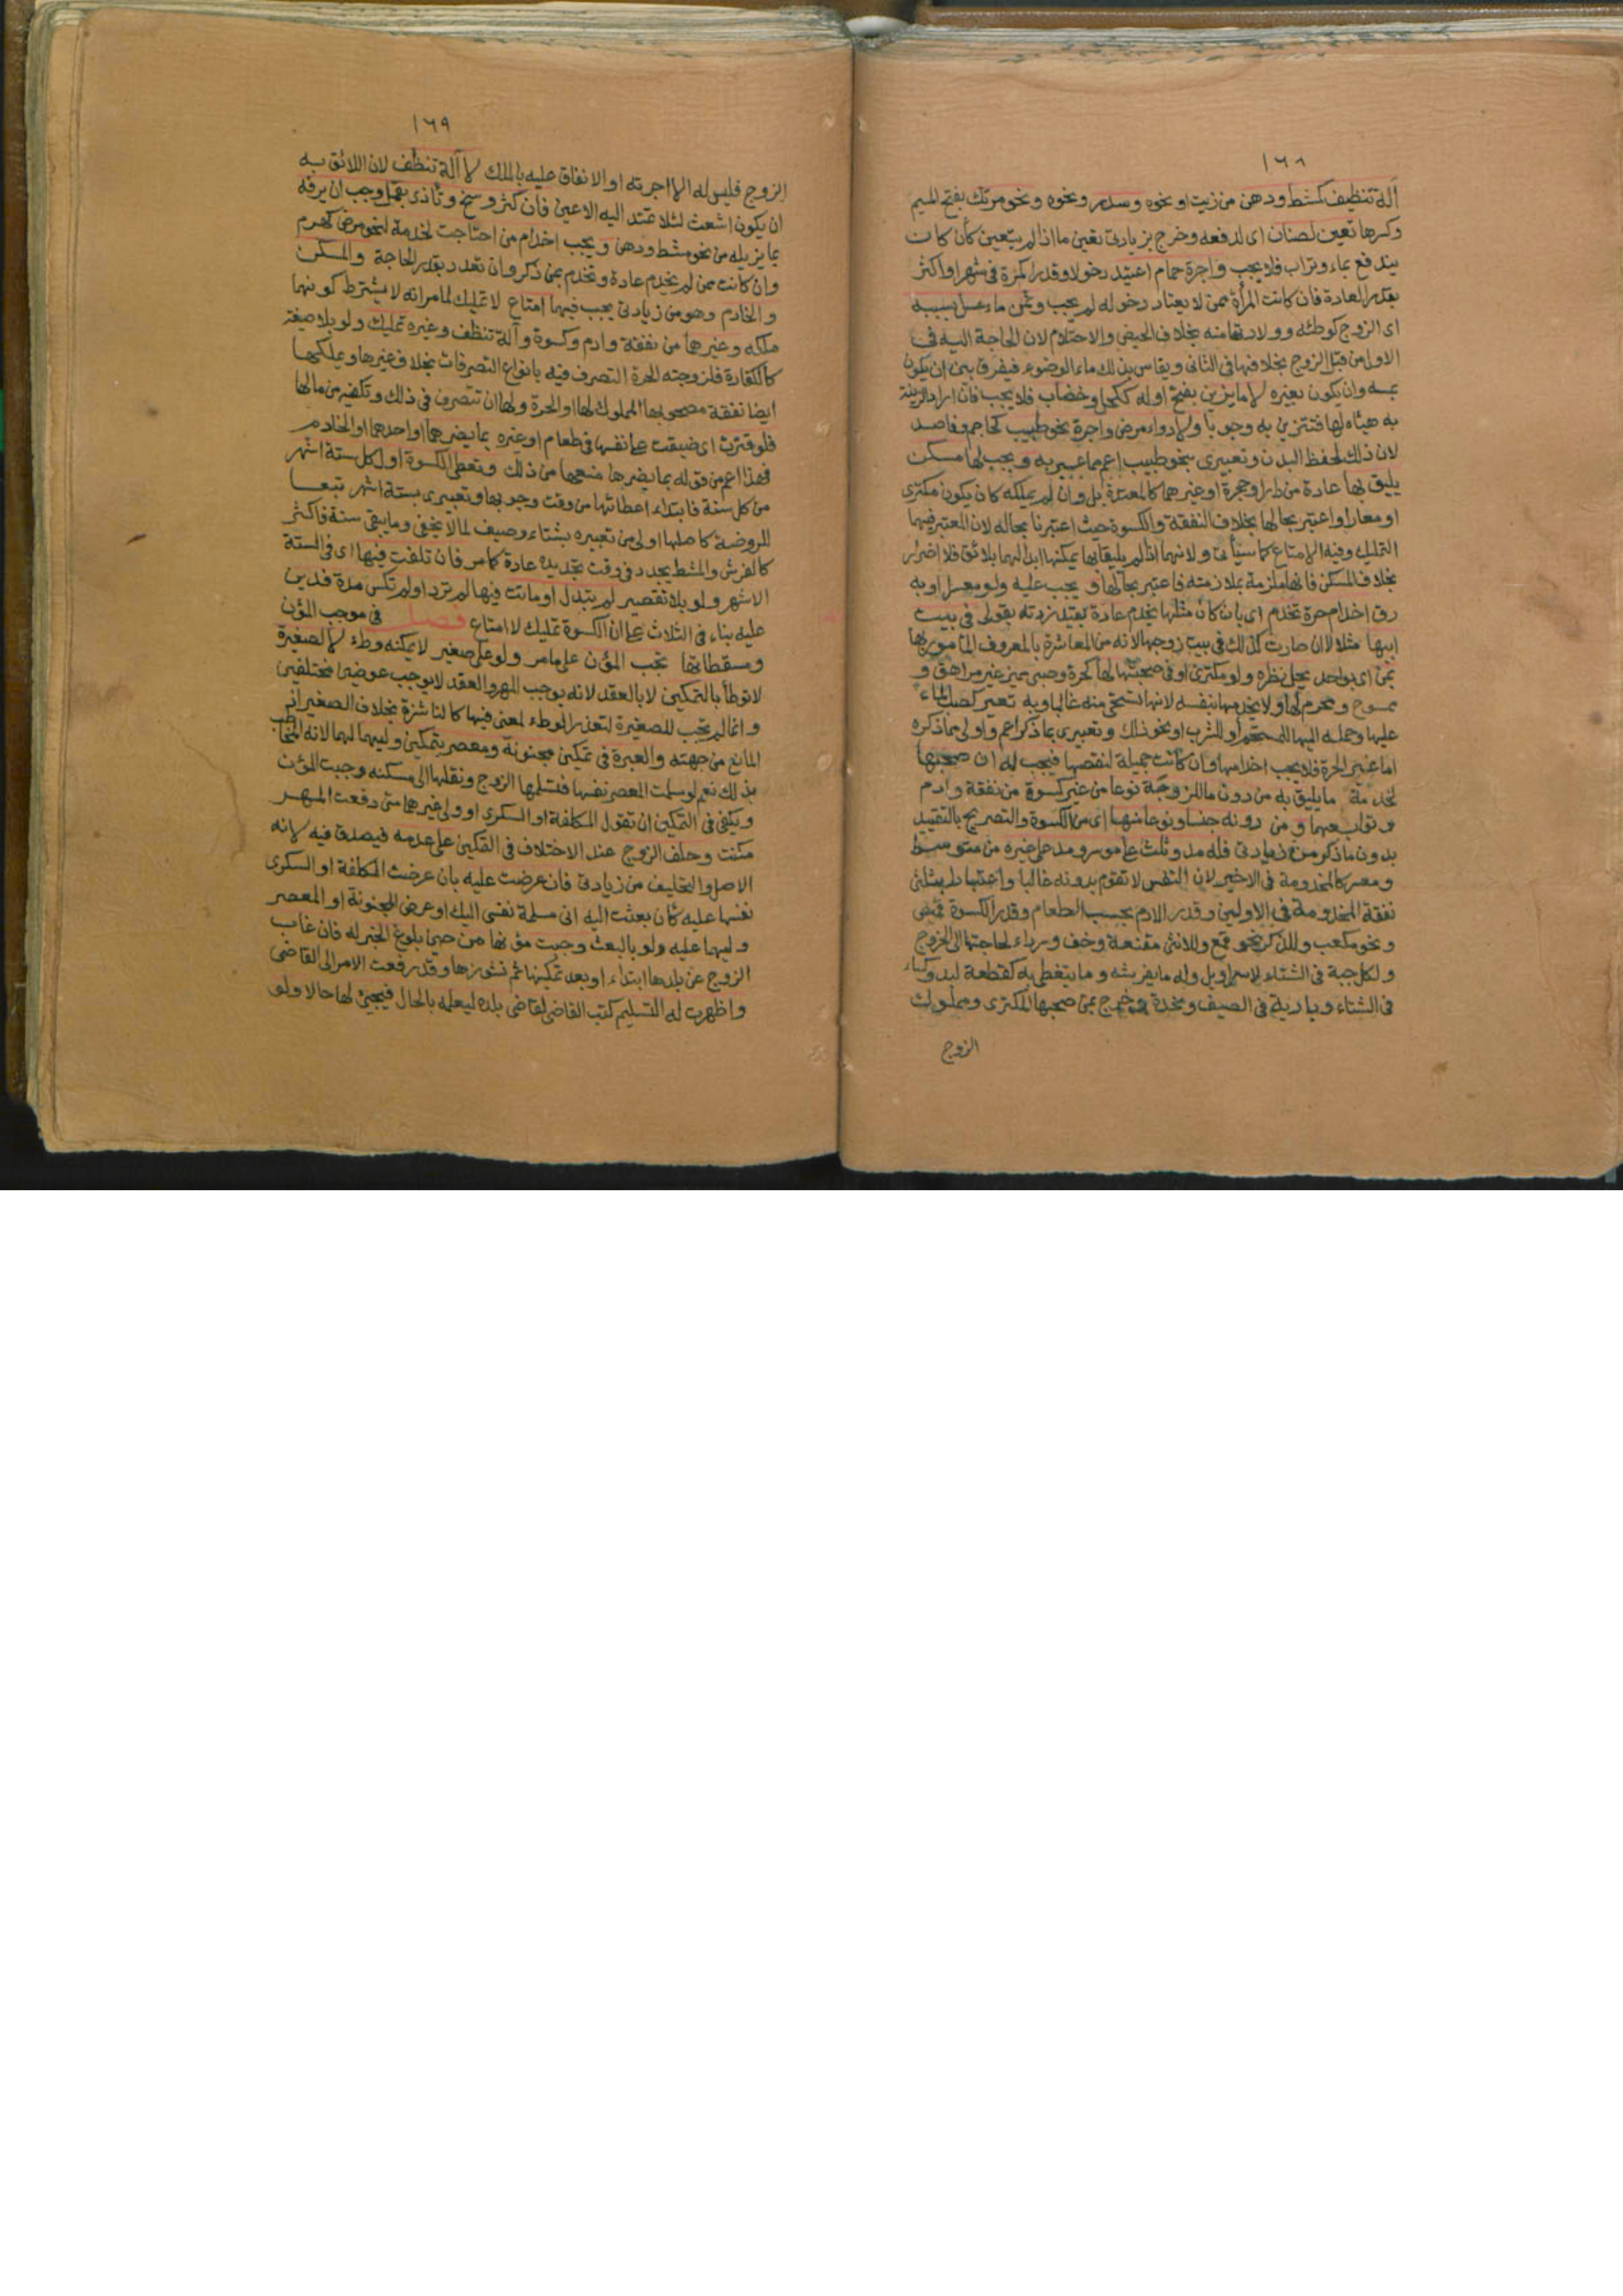 ١٦٨
آلة تنظيف كمشط ودهن من زيت او نحوه وسدر ونحوه ونحو مرتك بفتح الميم
وكسرها تعين لصنان اى لدفعه وخرج بزيادتى تعين ما اذا لم يتعين كأن كان
يندفع بماء وتراب فلا يجب واجرة حمام اعتيد دخولا وقدرا كمرة فى شهر او اكثر
بقدر العادة فان كانت المرأة ممن لا يعتاد دخوله لم يجب وثمن ماء غسل بسببه
اى الزوج كوطئه وولادتها منه بخلاف الحيض والاحتلام لان الحاجة اليه فى
الاول من قبل الزوج بخلافها فى الثانى ويقاس بذلك ماء الوضوء فيفرق بين ان يكون
بمسه وان يكون بغيره لا ما يزين بفتح اوله ككحل وخضاب فلا يجب فان اراد الزينة
به هيأه لها فتتزين به وجوبا ولا دواء مرض واجرة نحو طبيب كحاجم وفاصد
لان ذلك لحفظ البدن وتعبيرى بنحو طبيب اعم مما عبر به ويجب لها مسكن
يليق بها عادة من دار او حجرة او غيرهما كالمعتدة بل وان لم يملكه كان يكون مكترى
او معارا واعتبر بحالها بخلاف النفقة والكسوة حيث اعتبرنا بحاله لان المعتبر فيهما
التمليك وفيه الامتاع كما سيأتى ولانهما اذا لم يليقا بها يمكنها ابدالهما بلائق فلا اضرار
بخلاف المسكن فانها ملزمة بملازمته فاعتبر بحالها و يجب عليه ولو معسرا او به
رق اخدام حرة تخدم اى بان كان مثلها يخدم عادة بقيد زدته بقولى فى بيت
ابيها مثلا لا ان صارت كذلك فى بيت زوجها لانه من المعاشرة بالمعروف المأمور بها
بمن اى بواحد يحل نظره ولو مكترى او فى صحبتها لها كحرة وصبى مميز غير مراهق و
ممسوح ومحرم لها ولا يخدمها بنفسه لانها تستحى منه غالبا وبه تعير كصب الماء
عليها وحمله اليها للمستحم او للشرب او نحو ذلك وتعبيرى بما ذكر اعم واولى مما ذكره
اما غير الحرة فلا يجب اخدامها وان كانت جميلة لنقصها فيجب له ان صحبها
لخدمة ما يليق به من دون ما للزوجة نوعا من غير كسوة من نفقة وادم
وتوابعهما و من دونه جنسا ونوعا منها اى من الكسوة والتصريح بالتقييد
بدون ما ذكر من زيادتى فله مد وثلث على موسر ومد على غيره من متوسط
ومعسر كالمخدومة فى الاخير لان النفس لا تقوم بدونه غالبا واعتبارا بثلثى
نفقة المخدومة فى الاولين وقدر الادم بحسب الطعام وقدر الكسوة قميص
ونحو مكعب وللذكر نحو قمع وللانثى مقنعة وخف ورداء لحاجتها الى الخروج
ولكل جبة فى الشتاء لا سراويل وله ما يفرشه وما يتغطى به كقطعة لبد وكساء
فى الشتاء وبارية فى الصيف ومخدة وخرج بمن صحبها المكترى ومملوك
الزوج
١٦٩
الزوج فليس له الا اجرته او الانفاق عليه بالملك لا آلة تنظف لان اللائق به
ان يكون اشعث لئلا تمتد اليه الاعين فان كثر وسخ وتأذى بقمل وجب ان يرفه
بما يزيله من نحو مشط ودهن ويجب اخدام من احتاجت لخدمة لنحو مرض كهرم
وان كانت ممن لم يخدم عادة وتخدم بمن ذكر وان تعدد بقدر الحاجة والمسكن
والخادم وهو من زيادتى يجب فيهما امتاع لا تمليك لما مر انه لا يشترط كونهما
ملكه وغيرها من نفقة وادم وكسوة وآلة تنظف وغيره تمليك ولو بلا صيغة
كالكفارة فلزوجته الحرة التصرف فيه بانواع التصرفات بخلاف غيرها ويملكها
ايضا نفقة مصحوبها المملوك لها او الحرة ولها ان تتصرف فى ذلك وتكفيه من مالها
فلو قترت اى ضيقت على نفسها فى طعام او غيره بما يضرهما او احدهما او الخادم
فهذا اعم من قوله بما يضرها منعها من ذلك وتعطى الكسوة اول كل ستة اشهر
من كل سنة فابتداء اعطائها من وقت وجوبها وتعبيرى بستة اشهر تبعا
للروضة كاصلها اولى من تعبيره بشتاء وصيف لما لا يخفى وما يبقى سنة فاكثر
كالفرش والمشط يجدد فى وقت تجديده عادة كما مر فان تلفت فيها اى فى الستة
الاشهر ولو بلا تقصير لم يتبدل او ماتت فيها لم ترد او لم تكس مدة فدين
عليه بناء فى الثلاث على ان الكسوة تمليك لا امتاع فصل فى موجب المؤن
ومسقطاتها تجب المؤن على ما مر ولو على صغير لا يمكنه وطء لا لصغيرة
لا توطأ بالتمكين لا بالعقد لانه يوجب المهر والعقد لا يوجب عوضين مختلفين
وانما لم تجب للصغيرة لتعذر الوطء لمعنى فيها كالناشزة بخلاف الصغير اذ
المانع من جهته والعبرة فى تمكين مجنونة ومعصر بتمكين وليهما لهما لانه المخاطب
بذلك نعم لو سلمت المعصر نفسها فتسلمها الزوج ونقلها الى مسكنه وجبت المؤن
ويكفى فى التمكين ان تقول المكلفة او السكرى او ولى غيرهما متى دفعت المهر
مكنت وحلف الزوج عند الاختلاف فى التمكين على عدمه فيصدق فيه لانه
الاصل والتحليف من زيادتى فان عرضت عليه بان عرضت المكلفة او السكرى
نفسها عليه كأن بعثت اليه انى مسلمة نفسى اليك او عرض المجنونة او المعصر
وليهما عليه ولو بالبعث وجبت مؤنها من حين بلوغ الخبر له فان غاب
الزوج عن بلدها ابتداء او بعد تمكينها ثم نشوزها وقد رفعت الامر الى القاضى
واظهرت له التسليم كتب القاضى لقاضى بلده ليعلمه بالحال فيجئ لها حالا ولو